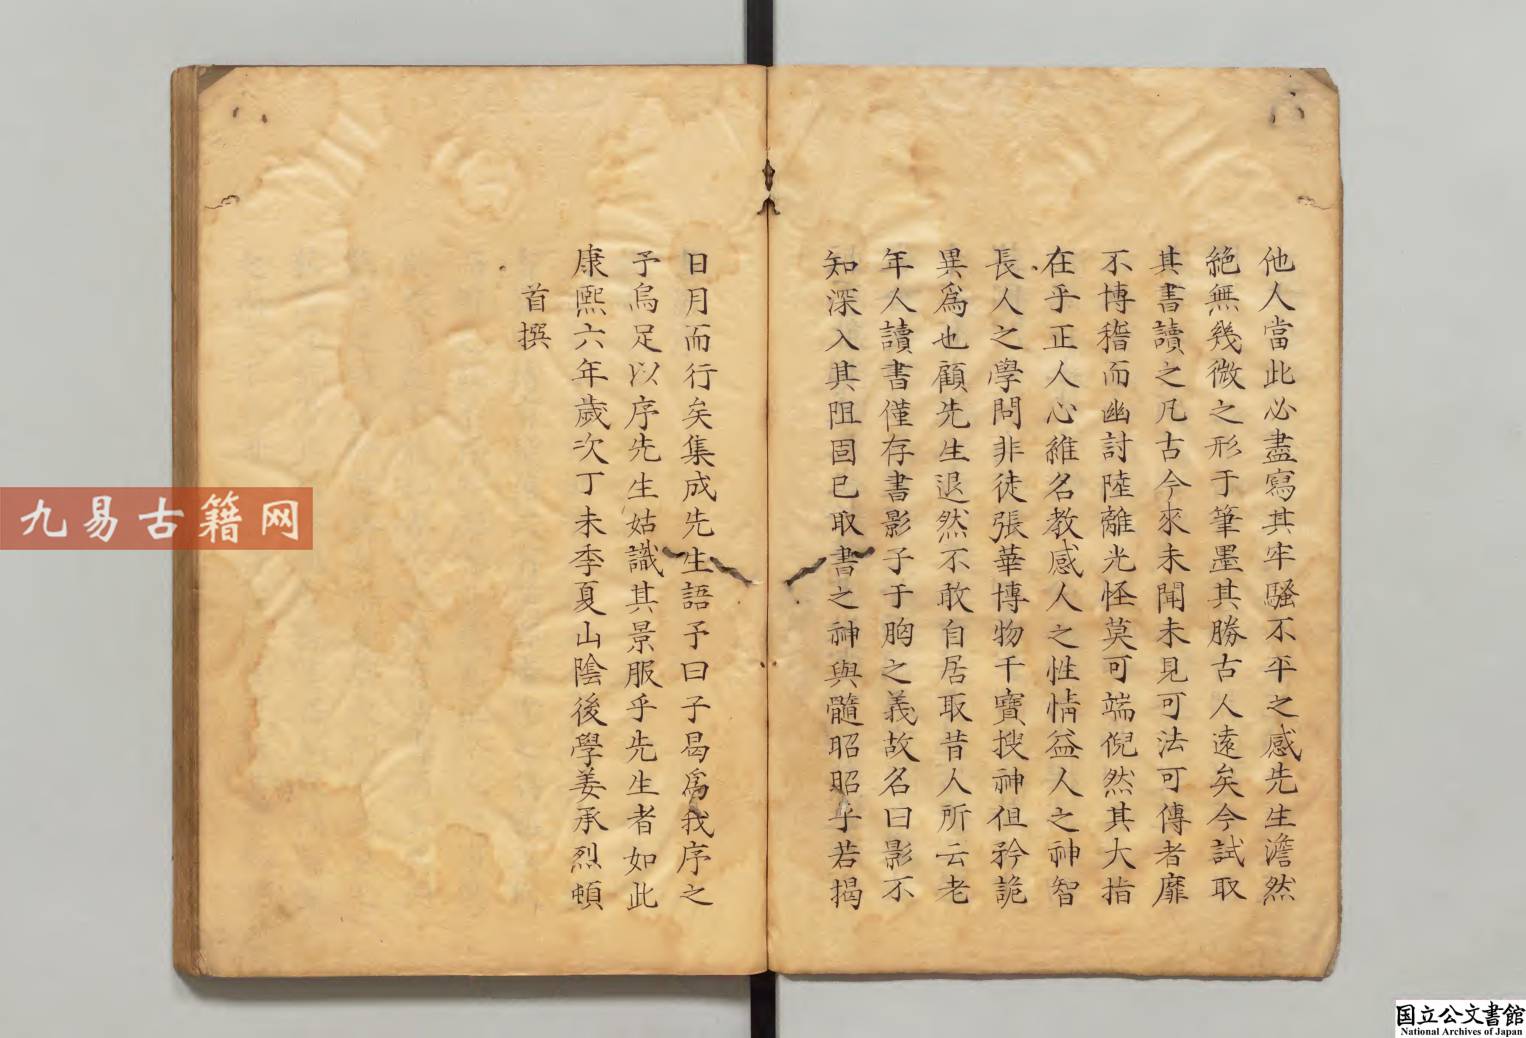 他人當此必盡寫其牢騷不平之感先生澹然
絕無幾微之形于筆墨其勝古人遠矣今試取
其書讀之凡古今來未聞未見可法可傳者靡
不博稽而幽討陸離光怪莫可端倪然其大指
在乎正人心維名教感人之性情益人之神智
長人之學問非徒張華博物干寶搜神侈矜詭
異爲也顧先生退然不敢自居取昔人所云老
年人讀書僅存書影子于胸之義故名曰影不
知深入其阻固已取書之神與髓昭昭乎若揭
日月而行矣集成先生語予曰子曷爲我序之
予烏足以序先生姑識其景服乎先生者如此
康熙六年歲次丁未季夏山陰後學姜承烈頓
首撰
九易古籍网
国立公文書館
National Archives of Japan